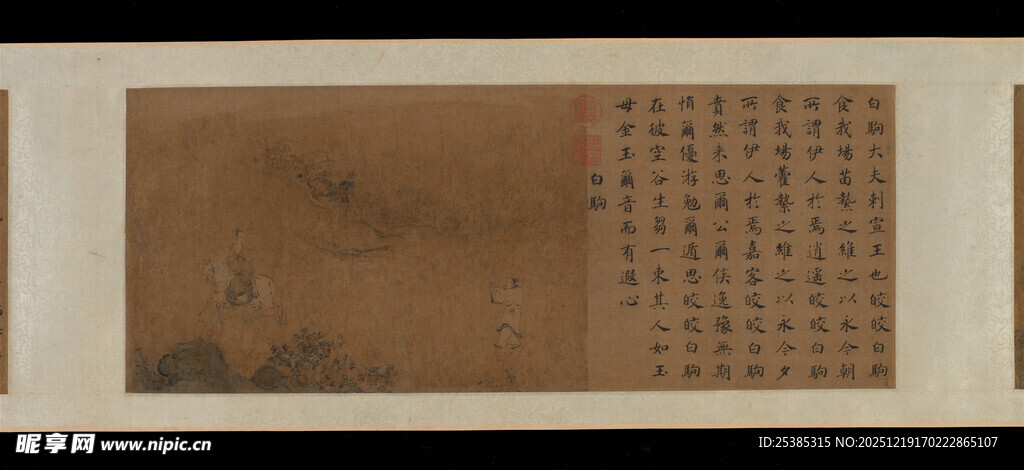 白駒大夫刺宣王也皎皎白駒
食我場苗縶之維之以永今朝
所謂伊人於焉逍遙皎皎白駒
食我場藿縶之維之以永今夕
所謂伊人於焉嘉客皎皎白駒
賁然来思爾公爾侯逸豫無期
慎爾優游勉爾遁思皎皎白駒
在彼空谷生芻一束其人如玉
毋金玉爾音而有遐心
白駒
昵享网 www.nipic.cn
ID:25385315 NO:20251219170222865107